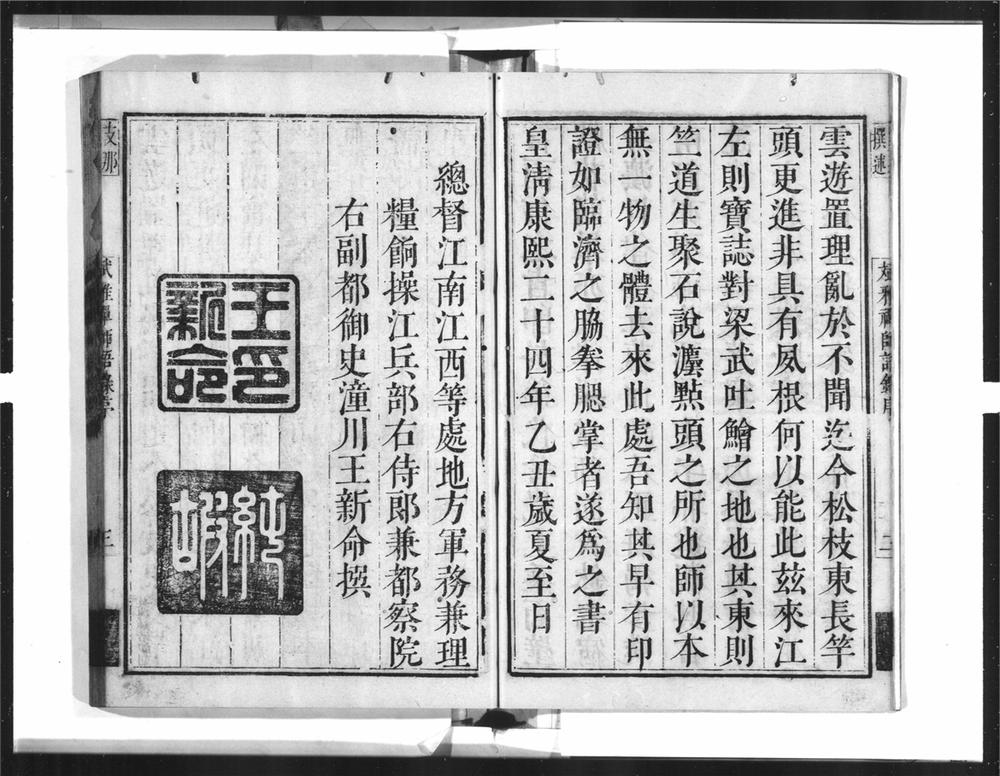 撰述
雲遊置理亂於不聞迄今松枝東長竿
頭更進非具有夙根何以能此茲來江
左則寶誌對梁武吐鱠之地也其東則
竺道生聚石說灋點頭之所也師以本
無一物之體去來此處吾知其早有印
證如臨濟之脇拳腮掌者遂爲之書
皇清康熙二十四年乙丑歲夏至日
總督江南江西等處地方軍務兼理
糧餉操江兵部右侍郎兼都察院
右副都御史潼川王新命撰
王新命印
純嘏
支那
三